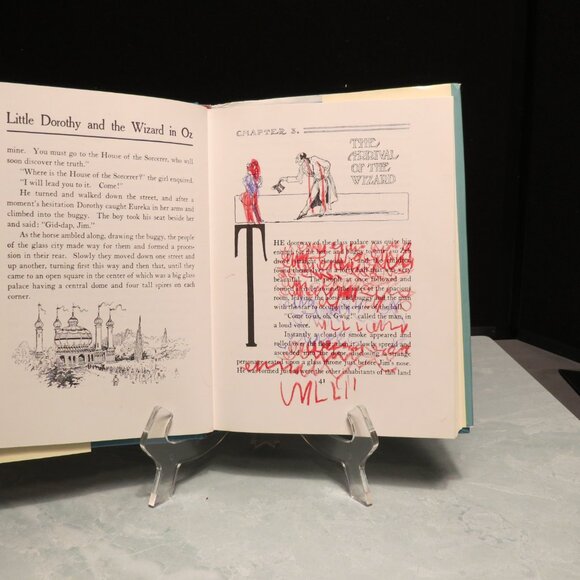 Little Dorothy and the Wizard in Oz
mine. You must go to the House of the Sorcerer, who will
soon discover the truth."
"Where is the House of the Sorcerer?" the girl enquired.
"I will lead you to it. Come!"
He turned and walked down the street, and after a
moment's hesitation Dorothy caught Eureka in her arms and
climbed into the buggy. The boy took his seat beside her
and said: "Gid-dap, Jim."
As the horse ambled along, drawing the buggy, the people of
the glass city made way for them and formed a proces-
sion in their rear. Slowly they moved down one street and
up another, turning first this way and then that, until they
came to an open square in the center of which was a big glass
palace having a central dome and four tall spires on each
corner.
CHAPTER 3.
THE
ARRIVAL
OF THE
WIZARD
THE doorway of the glass palace was quite big
followed and
spacious
room, leaving the
with
the star
center of the
"Come to us, Gwig!" called the man, in
a loud voice.
Instantly a cloud of smoke appeared and
rolled over the floor. slowly spread and
ascended strange
personage seated upon a glass throne just before Jim's nose.
He was formed just the other inhabitants of this land
41